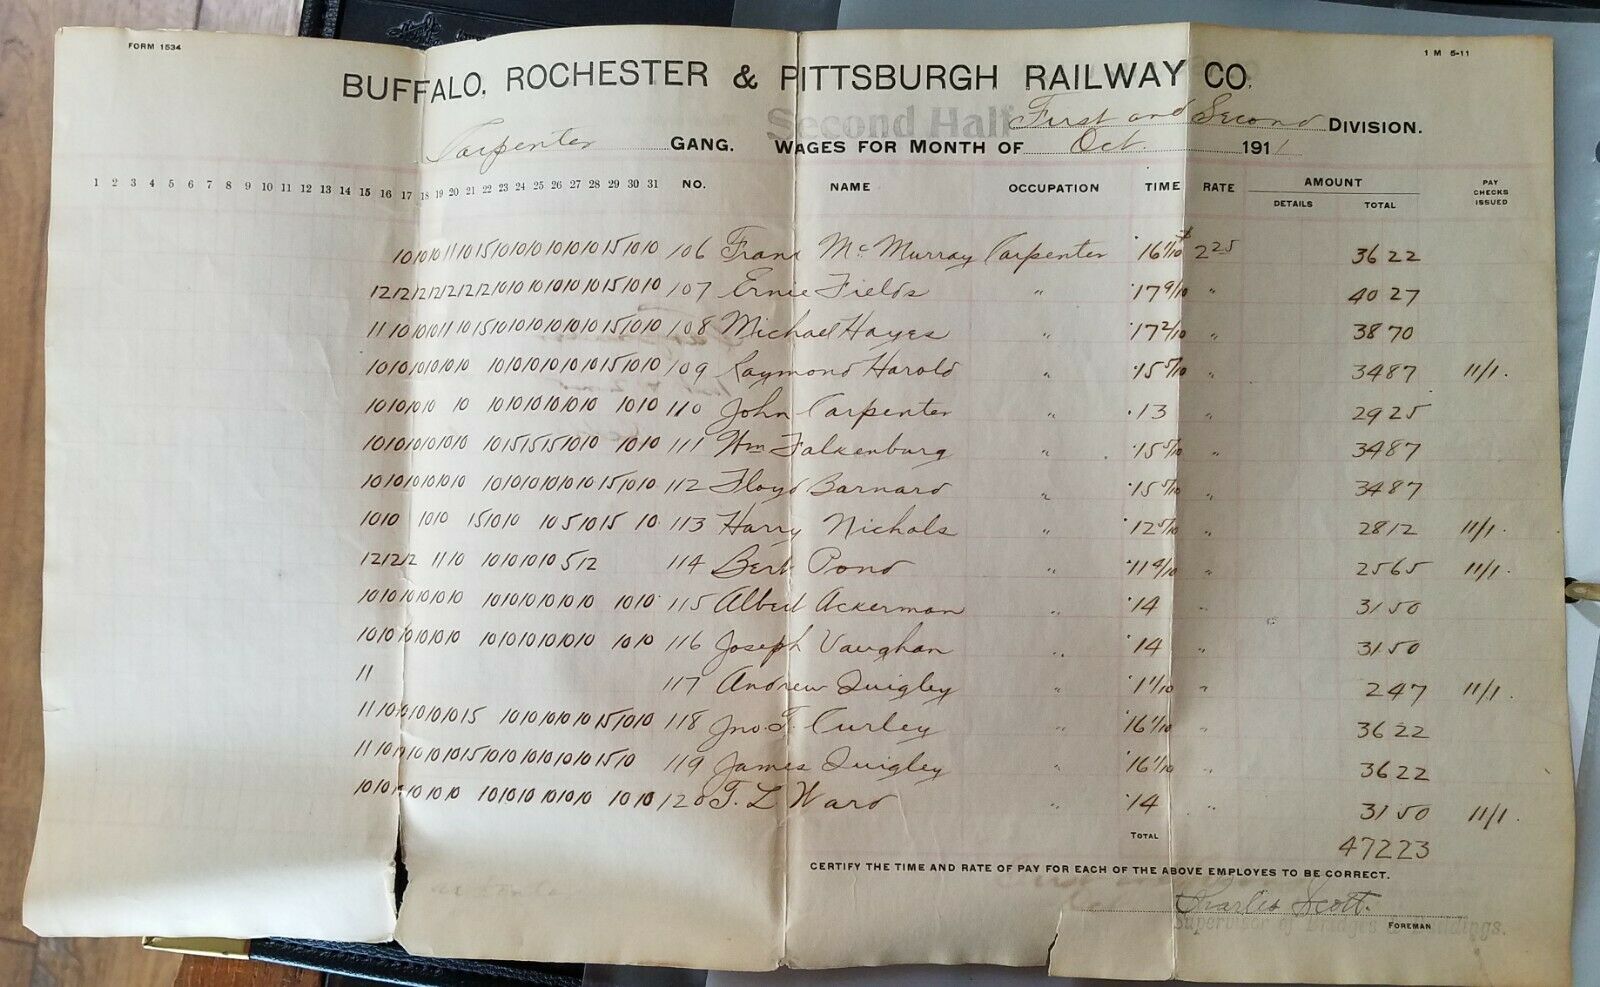 FORM 1534
1 M 5-11
BUFFALO, ROCHESTER & PITTSBURGH RAILWAY CO.
Second Half
Carpenter GANG. First and Second DIVISION.
WAGES FOR MONTH OF Oct. 1911
1 2 3 4 5 6 7 8 9 10 11 12 13 14 15 16 17 18 19 20 21 22 23 24 25 26 27 28 29 30 31 NO. NAME OCCUPATION TIME RATE AMOUNT DETAILS TOTAL PAY CHECKS ISSUED
10 10 10 11 10 15 10 10 10 10 10 10 15 10 10 106 Frank McMurray Carpenter 16 1/10 2 25 36 22
12 12 12 12 12 12 12 10 10 10 10 10 10 15 10 10 107 Ernie Fields " 17 9/10 " 40 27
11 10 10 10 11 10 15 10 10 10 10 10 10 15 10 10 108 Michael Hayes " 17 2/10 " 38 70
10 10 10 10 10 10 10 10 10 10 10 10 15 10 10 109 Raymond Harold " 15 5/10 " 34 87 11/1.
10 10 10 10 10 10 10 10 10 10 10 10 10 110 John Carpenter " 13 " 29 25
10 10 10 10 10 10 10 15 15 15 10 10 10 10 111 Wm Falkenburg " 15 5/10 " 34 87
10 10 10 10 10 10 10 10 10 10 10 10 15 10 10 112 Floyd Barnard " 15 5/10 " 34 87
10 10 10 10 15 10 10 10 5 10 15 10 113 Harry Nichols " 12 5/10 " 28 12 11/1.
12 12 12 11 10 10 10 10 10 5 12 114 Bert Pond " 11 4/10 " 25 65 11/1.
10 10 10 10 10 10 10 10 10 10 10 10 10 10 115 Albert Ackerman " 14 " 31 50
10 10 10 10 10 10 10 10 10 10 10 10 10 10 116 Joseph Vaughan " 14 " 31 50
11 117 Andrew Quigley " 1 1/10 " 2 47 11/1.
11 10 10 10 10 10 15 10 10 10 10 10 15 10 10 118 Jno. F. Curley " 16 1/10 " 36 22
11 10 10 10 10 10 15 10 10 10 10 10 10 15 10 119 James Quigley " 16 1/10 " 36 22
10 10 10 10 10 10 10 10 10 10 10 10 10 10 120 T. L Ward " 14 " 31 50 11/1.
TOTAL 472 23
CERTIFY THE TIME AND RATE OF PAY FOR EACH OF THE ABOVE EMPLOYES TO BE CORRECT.
Charles Scott.
Supervisor of Bridges & Buildings.
FOREMAN